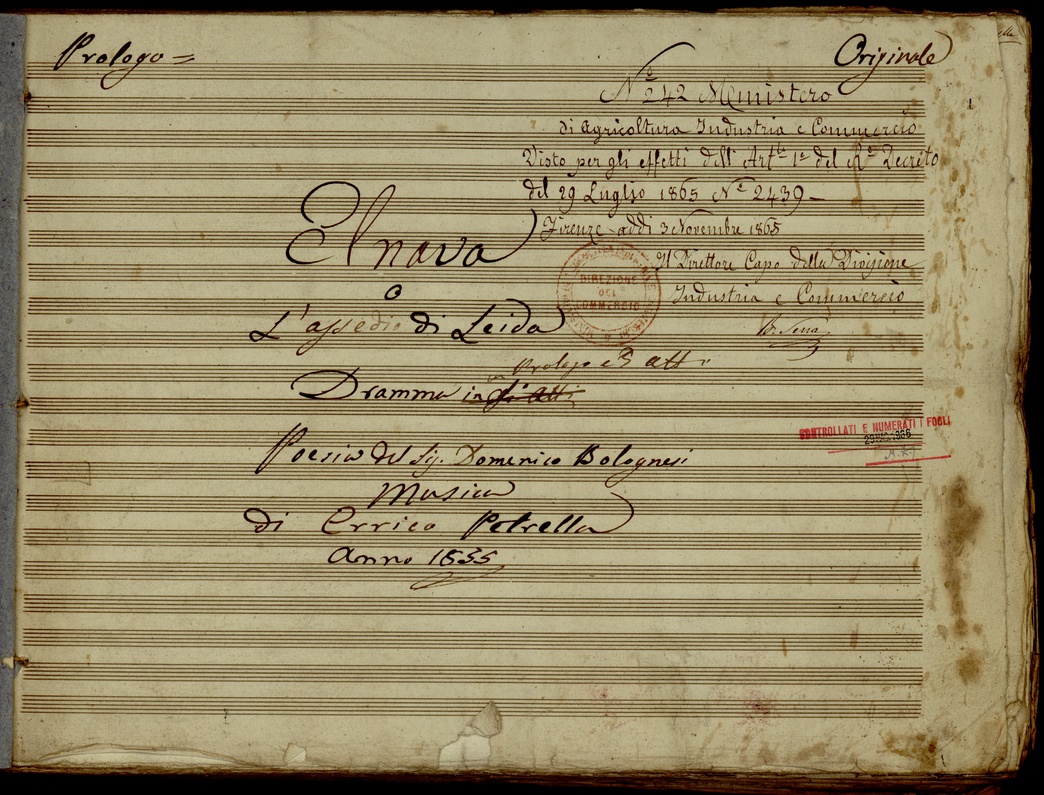 Prologo =
Originale
N.º 242 Ministero
di Agricoltura Industria e Commercio
Visto per gli effetti dell' Art.º 1º del Rº Decreto
del 29 Luglio 1865 Nº 2439 –
Firenze addì 3 Novembre 1865
Il Direttore Capo della Divisione
Industria e Commercio
Elnava
o
L'assedio di Leida
DIREZIONE
DEL
COMMERCIO
Prologo e 3 atti
Dramma in
CONTROLLATI E NUMERATI I FOGLI
Poesia del Sig. Domenico Bolognesi
Musica
di Errico Petrella
Anno 1855